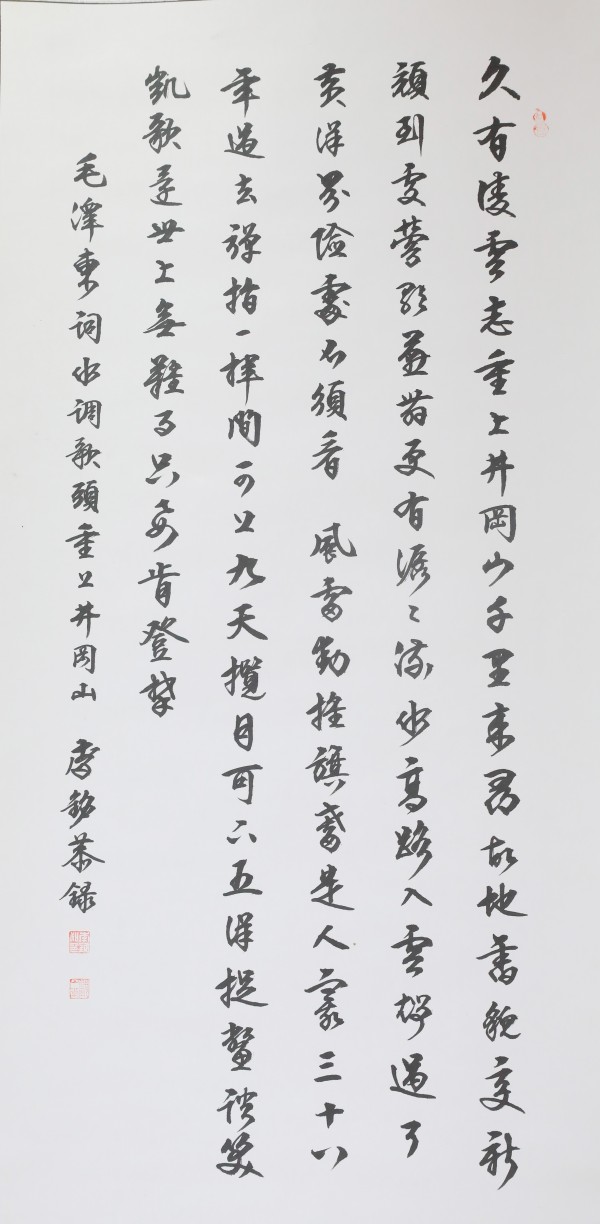 久有凌雲志重上井岡山千里來尋故地舊貌變新
顏到處鶯歌燕舞更有潺々流水高路入雲端過了
黃洋界險處不須看 風雷動旌旗奮是人寰三十八
年過去彈指一揮間可上九天攬月可下五洋捉鱉談笑
凱歌還世上無難事只要肯登攀
毛澤東詞水調歌頭重上井岡山 銘恭錄